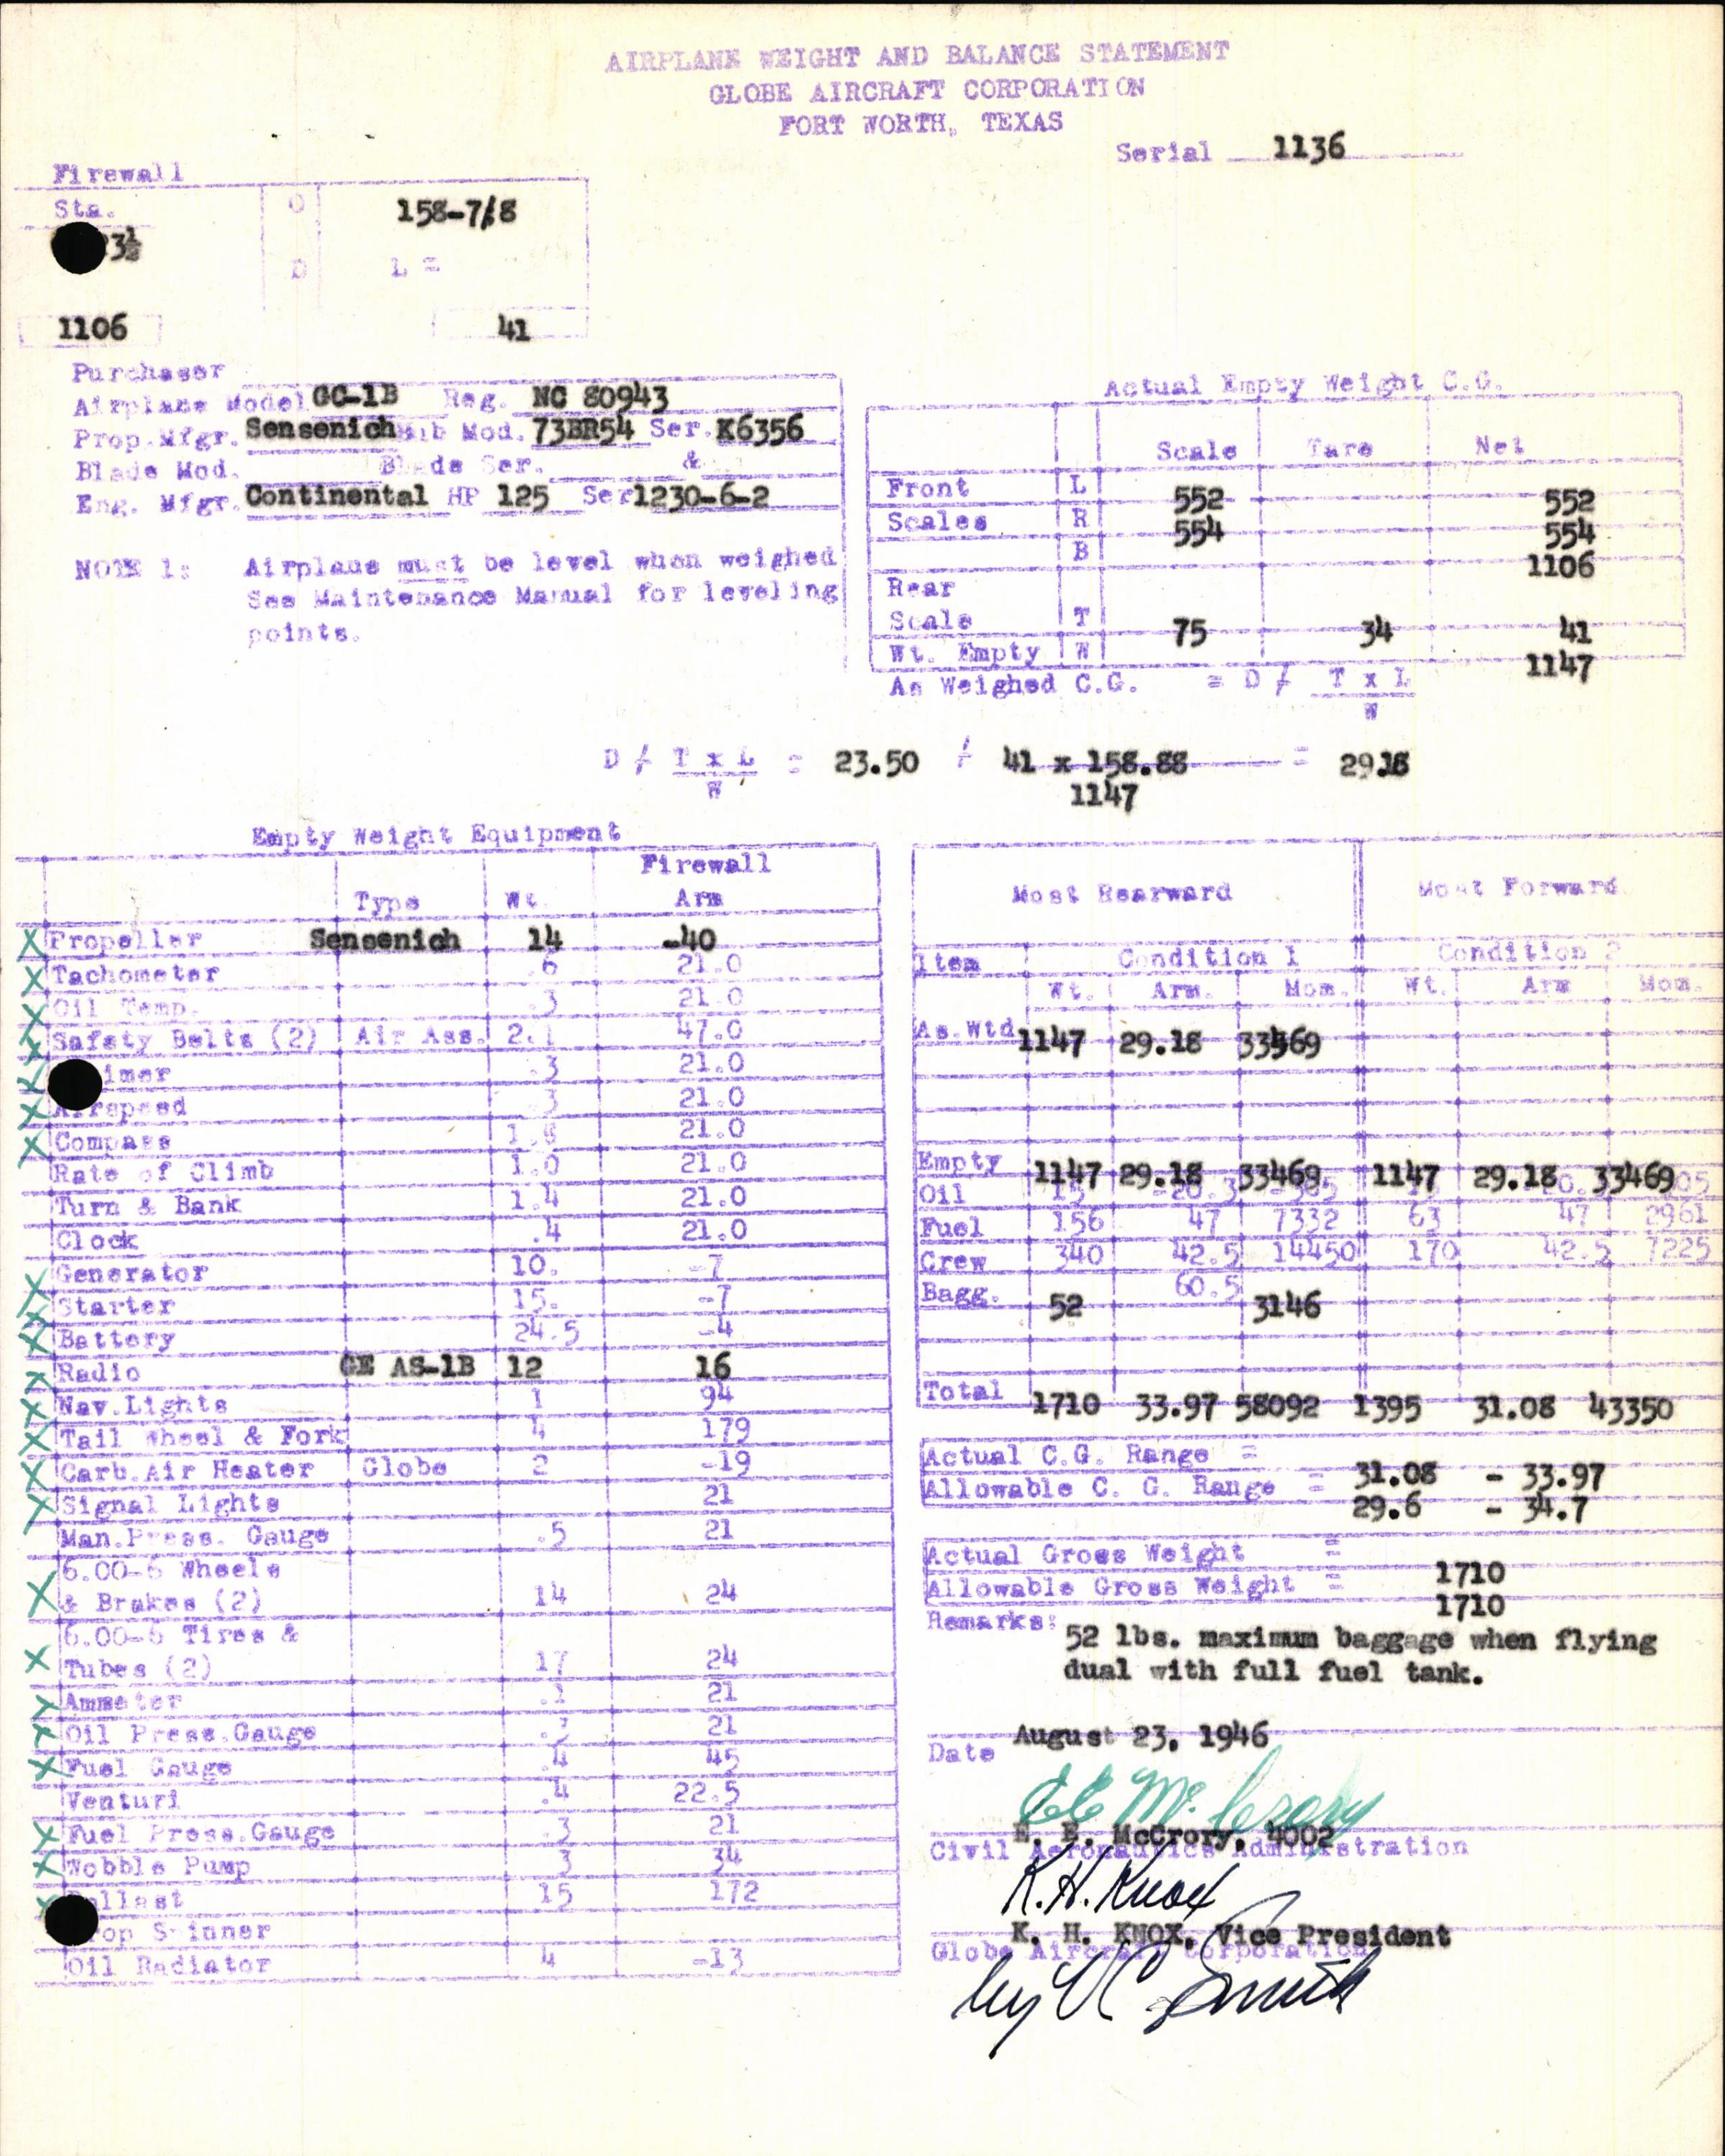 AIRPLANE WEIGHT AND BALANCE STATEMENT
GLOBE AIRCRAFT CORPORATION
FORT WORTH, TEXAS
Serial 1136
Firewall
Sta. O 158-7/8
3½
D L =
1106 41
Purchaser
Airplane Model GC-1B Reg. NC 80943
Prop.Mfgr. Sensenich Hub Mod. 73BR54 Ser. K6356
Blade Mod. Blade Ser. &
Eng. Mfgr. Continental HP 125 Ser 1230-6-2
NOTE 1: Airplane must be level when weighed
See Maintenance Manual for leveling
points.
Actual Empty Weight C.G.
Scale Tare Net
Front L 552 552
Scales R 554 554
B 1106
Rear
Scale T 75 34 41
Wt. Empty W 1147
As Weighed C.G. = D / T x L
W
D / T x L = 23.50 / 41 x 158.88 = 29.18
W 1147
Empty Weight Equipment
Type Wt. Firewall Arm
X Propeller Sensenich 14 -40
X Tachometer .6 21.0
X Oil Temp. .3 21.0
X Safety Belts (2) Air Ass. 2.1 47.0
X imer .3 21.0
X Airspeed .3 21.0
X Compass 1.8 21.0
Rate of Climb 1.0 21.0
Turn & Bank 1.4 21.0
Clock .4 21.0
X Generator 10. -7
X Starter 15. -7
X Battery 24.5 -4
X Radio GE AS-1B 12 16
X Nav.Lights 1 94
X Tail Wheel & Fork 4 179
X Carb.Air Heater Globe 2 -19
X Signal Lights 21
Man.Press. Gauge .5 21
6.00-6 Wheels
X & Brakes (2) 14 24
6.00-6 Tires &
X Tubes (2) 17 24
X Ammeter .1 21
X Oil Press.Gauge 21
X Fuel Gauge .4 45
Venturi .4 22.5
X Fuel Press.Gauge .3 21
X Wobble Pump 3 34
X allast 15 172
rop Spinner
Oil Radiator 4 -13
Most Rearward Most Forward
Item Condition 1 Condition 2
Wt. Arm. Mom. Wt. Arm Mom.
As.Wtd 1147 29.18 33469
Empty 1147 29.18 33469 1147 29.18 33469
Oil 15 -20.3
Fuel 156 47 7332 63 47 2961
Crew 340 42.5 14450 170 42.5 7225
Bagg. 52 60.5 3146
Total 1710 33.97 58092 1395 31.08 43350
Actual C.G. Range = 31.08 - 33.97
Allowable C. G. Range = 29.6 - 34.7
Actual Gross Weight = 1710
Allowable Gross Weight = 1710
Remarks: 52 lbs. maximum baggage when flying
dual with full fuel tank.
Date August 23, 1946
EE McCrory
E. E. McCrory, 4002
Civil Aeronautics Administration
K.H. Knox
K. H. KNOX, Vice President
Globe Aircraft Corporation
by Smith